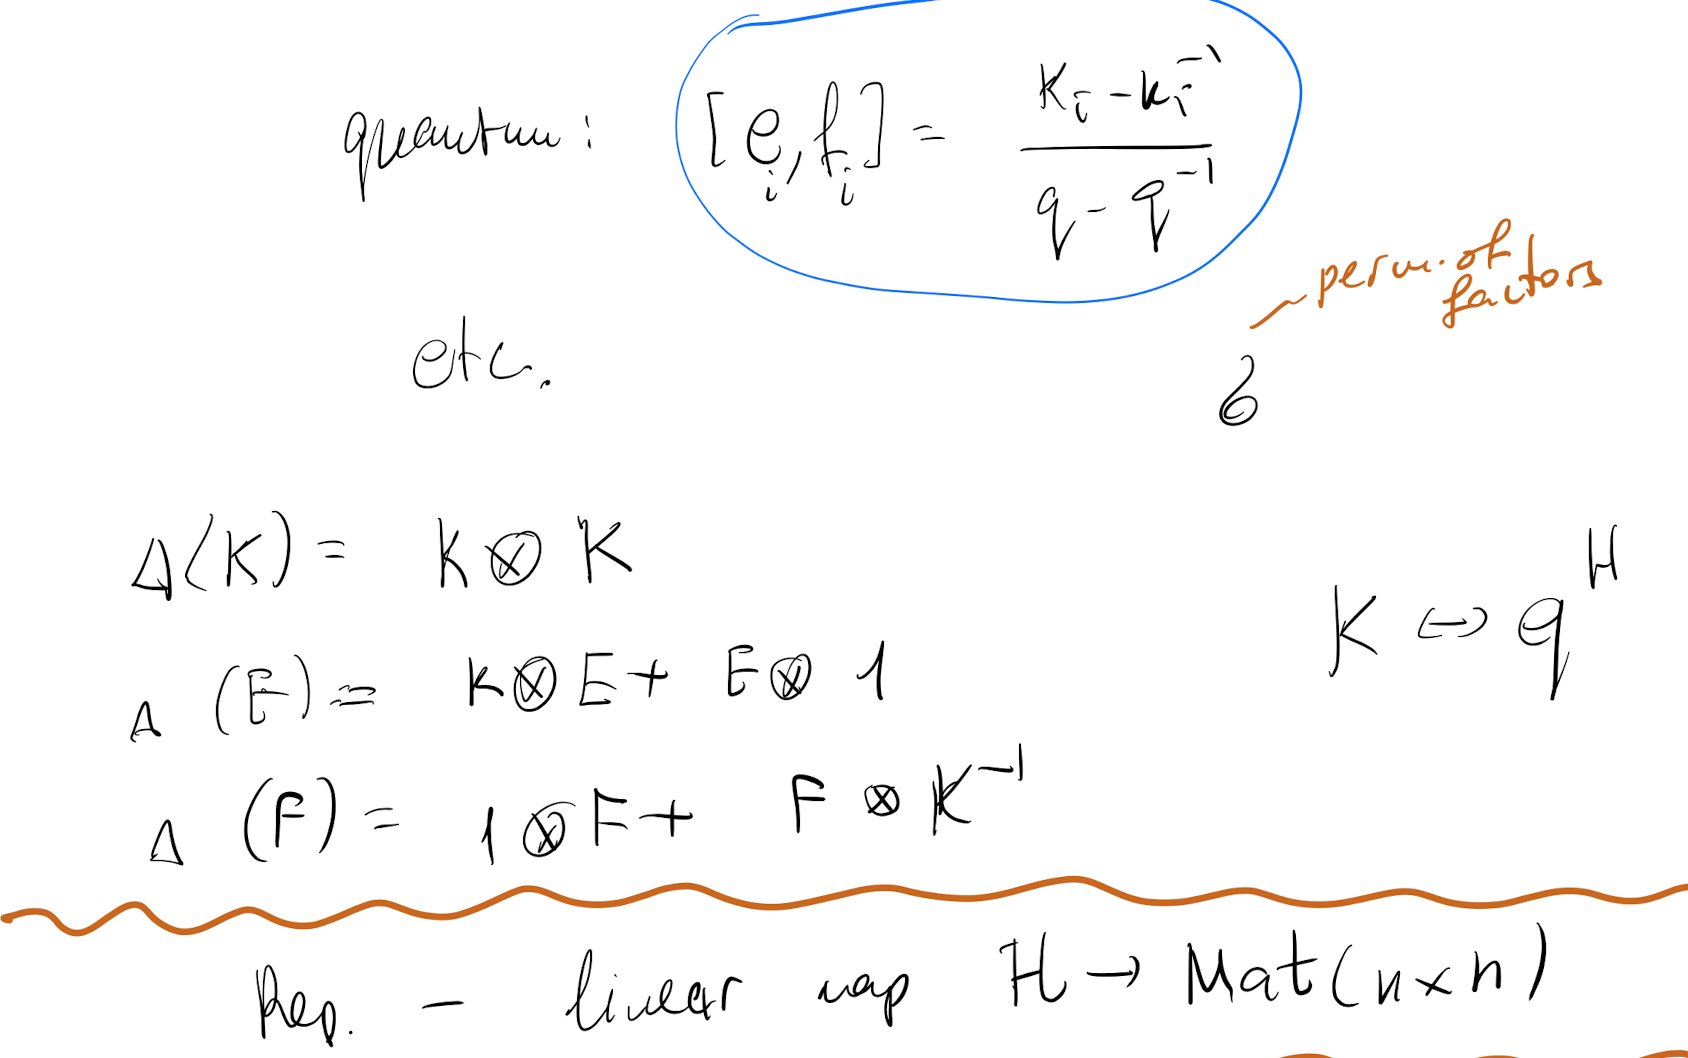 quantum: [e_i, f_i] = (K_i - K_i^{-1}) / (q - q^{-1})
perm. of
factors
etc.
σ
Δ(K) = K ⊗ K
K ↔ q^H
Δ(E) = K ⊗ E + E ⊗ 1
Δ(F) = 1 ⊗ F + F ⊗ K^{-1}
Rep. - linear map H → Mat(n×n)